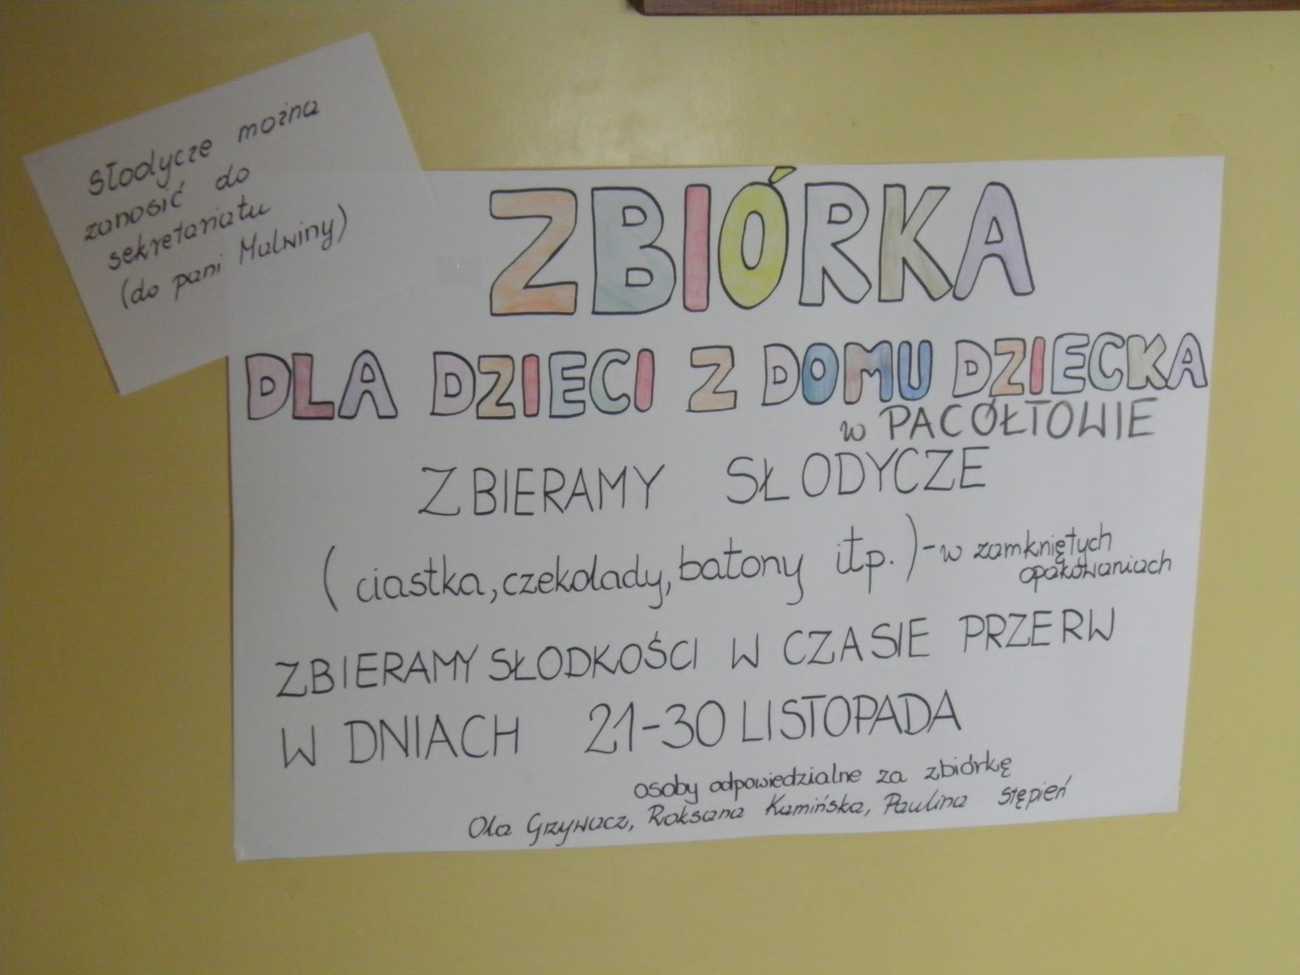 Słodycze można
zanosić do
sekretariatu
(do pani Malwiny)
ZBIÓRKA
DLA DZIECI Z DOMU DZIECKA
w PACÓŁTOWIE
ZBIERAMY SŁODYCZE
(ciastka, czekolady, batony itp.) - w zamkniętych
opakowaniach
ZBIERAMY SŁODKOŚCI W CZASIE PRZERW
W DNIACH 21-30 LISTOPADA
osoby odpowiedzialne za zbiórkę
Ola Grzywacz, Roksana Kamińska, Paulina Stępień